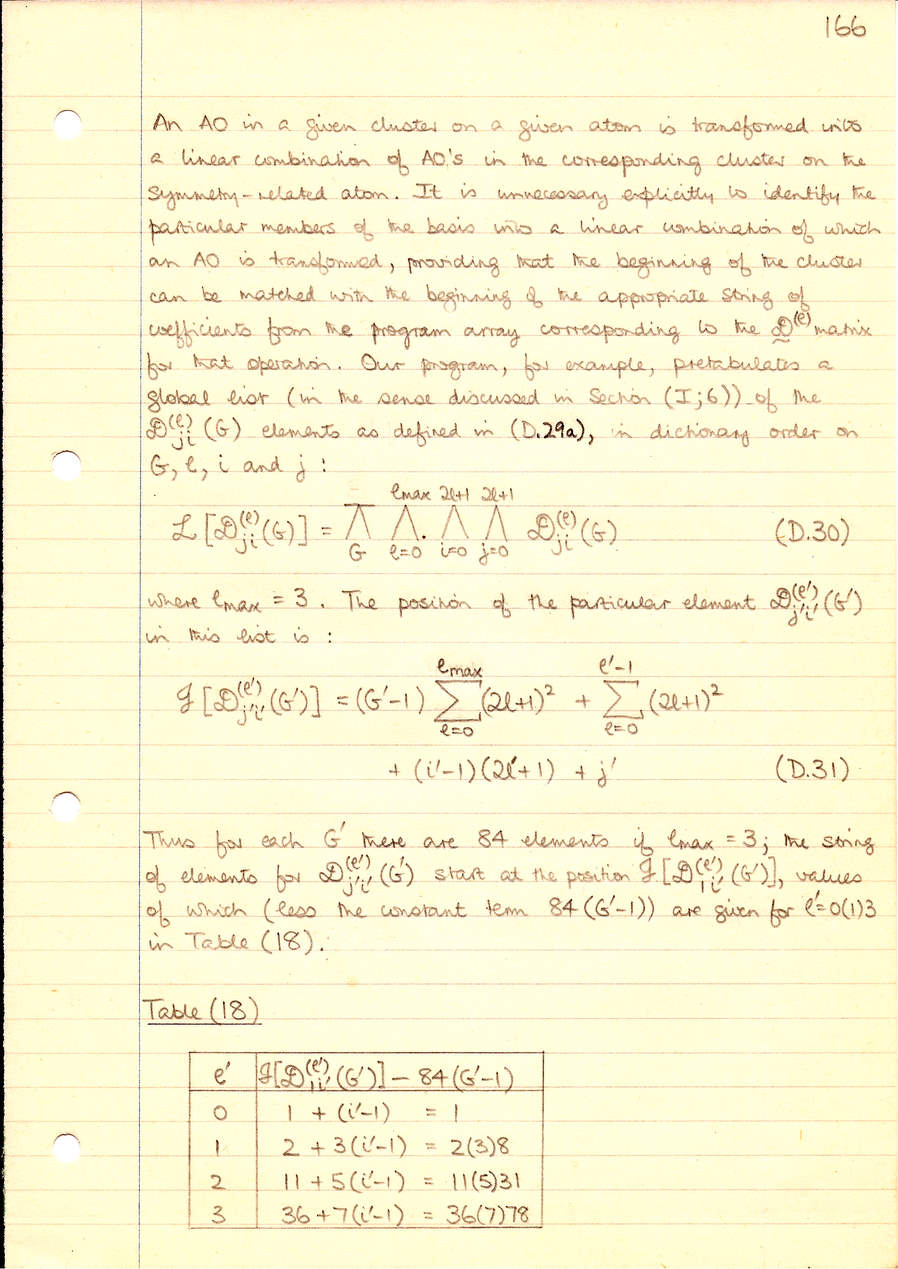 166
An AO in a given cluster on a given atom is transformed into
a linear combination of AO's in the corresponding cluster on the
symmetry-related atom. It is unnecessary explicitly to identify the
particular members of the basis into a linear combination of which
an AO is transformed, providing that the beginning of the cluster
can be matched with the beginning of the appropriate string of
coefficients from the program array corresponding to the 𝒟^(ℓ) matrix
for that operation. Our program, for example, pretabulates a
global list (in the sense discussed in Section (I;6)) of the
𝒟_ji^(ℓ)(G) elements as defined in (D.29a), in dictionary order on
G, ℓ, i and j :
ℒ[𝒟_ji^(ℓ)(G)] = Λ_G Λ_{ℓ=0}^{ℓmax} Λ_{i=0}^{2ℓ+1} Λ_{j=0}^{2ℓ+1} 𝒟_ji^(ℓ)(G) (D.30)
where ℓmax = 3. The position of the particular element 𝒟_j'i'^(ℓ')(G')
in this list is :
𝓘[𝒟_j'i'^(ℓ')(G')] = (G'-1) Σ_{ℓ=0}^{ℓmax} (2ℓ+1)² + Σ_{ℓ=0}^{ℓ'-1} (2ℓ+1)²
+ (i'-1)(2ℓ'+1) + j' (D.31)
Thus for each G' there are 84 elements if ℓmax = 3; the string
of elements for 𝒟_j'i'^(ℓ')(G') start at the position 𝓘[𝒟_1i'^(ℓ')(G')], values
of which (less the constant term 84(G'-1)) are given for ℓ'=0(1)3
in Table (18).
Table (18)
ℓ' 𝓘[𝒟_1i'^(ℓ')(G')] - 84(G'-1)
0 1 + (i'-1) = 1
1 2 + 3(i'-1) = 2(3)8
2 11 + 5(i'-1) = 11(5)31
3 36 + 7(i'-1) = 36(7)78